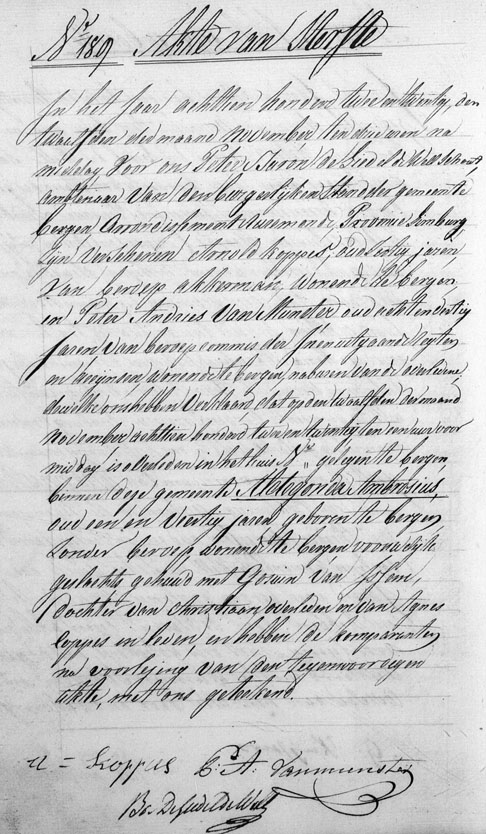 Nr 189 Akte van Sterfte
In het Jaar achttien honderd twee en twintig, den
twaalfden der maand November, ten drie uren na
middag Voor ons Peter
Ambtenaar van den burgerlijken Stand der gemeente
bergen Arrondissement Ruremonde, Provincie Limburg
zijn verschenen Arnold koppes, oud sestig jaren
Van beroep akkerman, Wonende te bergen
en Peter Andries Van Munster oud acht en dertig
Jaren van beroep commis der in en uitgaande regten
en accijnsen wonende te bergen, naburen van de overledene,
dewelke ons hebben Verklaard, dat op den twaalfden der maand
November achttien honderd twee en twintig ten een uur voor
middag is overleden in het huis No gelegen te bergen
binnen deze gemeente Aldegonda Ambrosius,
oud een en Veertig jaren, geboren te bergen
Zonder beroep wonende te bergen vrouwelijk
geslachts gehuwd met Goswin van Issem,
dochter van Christiaan overleden en van Agnes
Coppes in leven, en hebben de komparanten
na voorlezing van den tegenwoordigen
akte, met ons geteekend.
a = Koppes P. A. Vanmunster